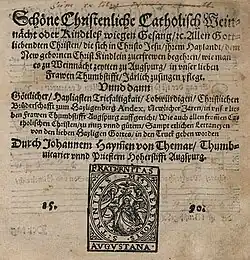 Schöne Christenliche Catholisch Wein-
nächt oder Kindtleß wiegen Gesang/ ec. Allen Gott-
liebenden Christen/ die sich in Christo Jesu/ jhrem Haylandt/ dem
New gebornen Christ Kindlein zuerfrewen begehren/ wie man
es zu Weinnächt zeytten zu Augspurg/ in unser lieben
Frawen Thumbstifft/ Järlich zusingen pflegt.
Unnd dann
Göttlicher/ Hayligsten Trifaltigkait/ Lobwürdigen/ Christlichen
Brüderschafft zum Hayligen Berg Andex,
den Frawen Thumbstifft Augspurg auffgericht/ Wie auch allen frommen Ca-
tholischen Christen/ zu nutz unnd gütem/
von den lieben Hayligen Gottes/ in den Truck geben worden
Durch Johannem Haymen von Themar/ Thumb-
uicarier unnd Priestern Hohenstiffts Augspurg.
15. 90.
FRADERNITAS
AVGVSTANA